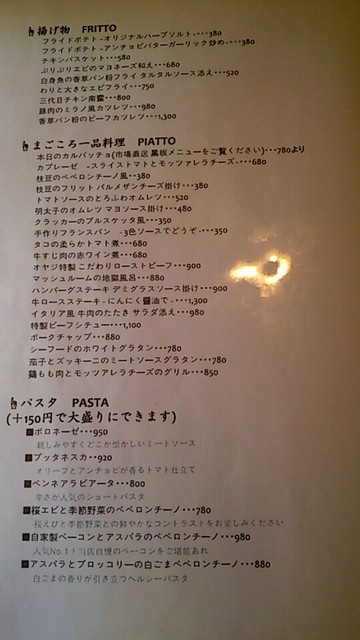 揚げ物 FRITTO
フライドポテト-オリジナルハーブソルト-・・・380
フライドポテト-アンチョビバターガーリック炒め-・・・380
チキンバスケット・・・580
ぷりぷりエビのマヨネーズ和え・・・680
白身魚の香草パン粉フライ タルタルソース添え・・・520
わりと大きなエビフライ・・・750
三代目チキン南蛮・・・800
豚肉のミラノ風カツレツ・・・980
香草パン粉のビーフカツレツ・・・1,300
まごころ一品料理 PIATTO
本日のカルパッチョ(市場直送 黒板メニューをご覧ください)・・・780より
カプレーゼ -スライストマトとモッツァレラチーズ-・・・680
枝豆のペペロンチーノ風・・380
枝豆のフリット パルメザンチーズ掛け・・・380
トマトソースのとろふわオムレツ・・・520
明太子のオムレツ マヨソース掛け・・・480
クラッカーのブルスケッタ風・・・350
手作りフランスパン -3色ソースでどうぞ-・・・350
タコの柔らかトマト煮・・・680
牛すじ肉の赤ワイン煮・・・680
オヤジ特製 こだわりローストビーフ・・・900
マッシュルームの地獄風呂・・・880
ハンバーグステーキ デミグラスソース掛け・・・900
牛ロースステーキ-にんにく醤油で-・・・1,300
イタリア風 牛肉のたたき サラダ添え・・・980
特製ビーフシチュー・・・1,100
ポークチャップ・・・880
シーフードのホワイトグラタン・・・780
茄子とズッキーニのミートソースグラタン・・・780
鶏もも肉とモッツアレラチーズのグリル・・・850
パスタ PASTA
(+150円で大盛りにできます)
■ボロネーゼ・・・950
親しみやすくどこか懐かしいミートソース
■プッタネスカ・・920
オリーブとアンチョビが香るトマト仕立て
■ペンネアラビアータ・・・800
辛さが人気のショートパスタ
■桜エビと季節野菜のペペロンチーノ・・・780
桜えびと季節野菜との鮮やかなコントラストをお楽しみください
■自家製ベーコンとアスパラのペペロンチーノ・・・980
人気No.1!当店自慢のベーコンをご堪能あれ
■アスパラとブロッコリーの白ごまペペロンチーノ・・・880
白ごまの香りが引き立つヘルシーパスタ